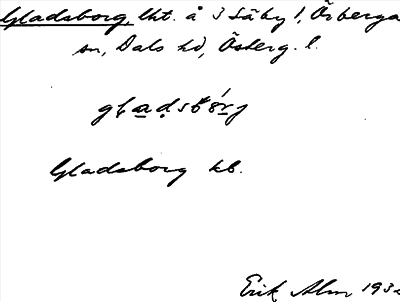 Gladsborg, lht. å 3 Säby 1, Örberga
sn, Dals hd, Österg. l.
Gladsborg kb.
Erik Alm 193